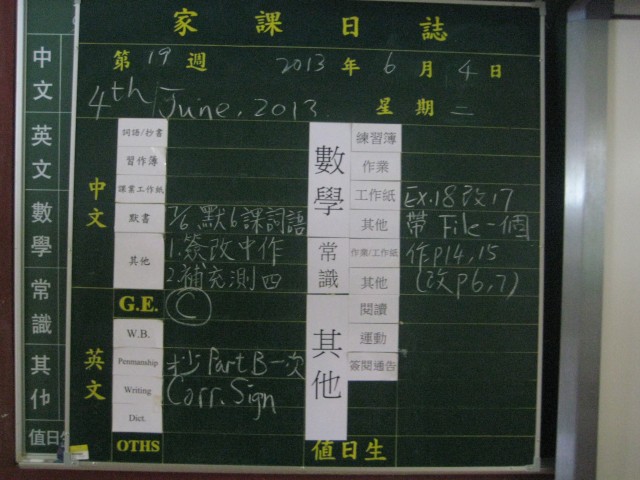 家課日誌
第19週 2013年6月4日
4th June, 2013 星期二
中文
詞語/抄書
習作簿
課業工作紙
默書 7/6 默6課詞語
其他 1.簽改中作
2.補充測四
G.E. C
英文
W.B.
Penmanship 抄 Part B 一次
Writing Corr. Sign
Dict.
OTHS
數學
練習簿
作業
工作紙 Ex.18改17
其他 帶 File 一個
常識
作業/工作紙 作p14,15
其他 (改p6,7)
其他
閱讀
運動
簽閱通告
值日生
中文
英文
數學
常識
其他
值日生